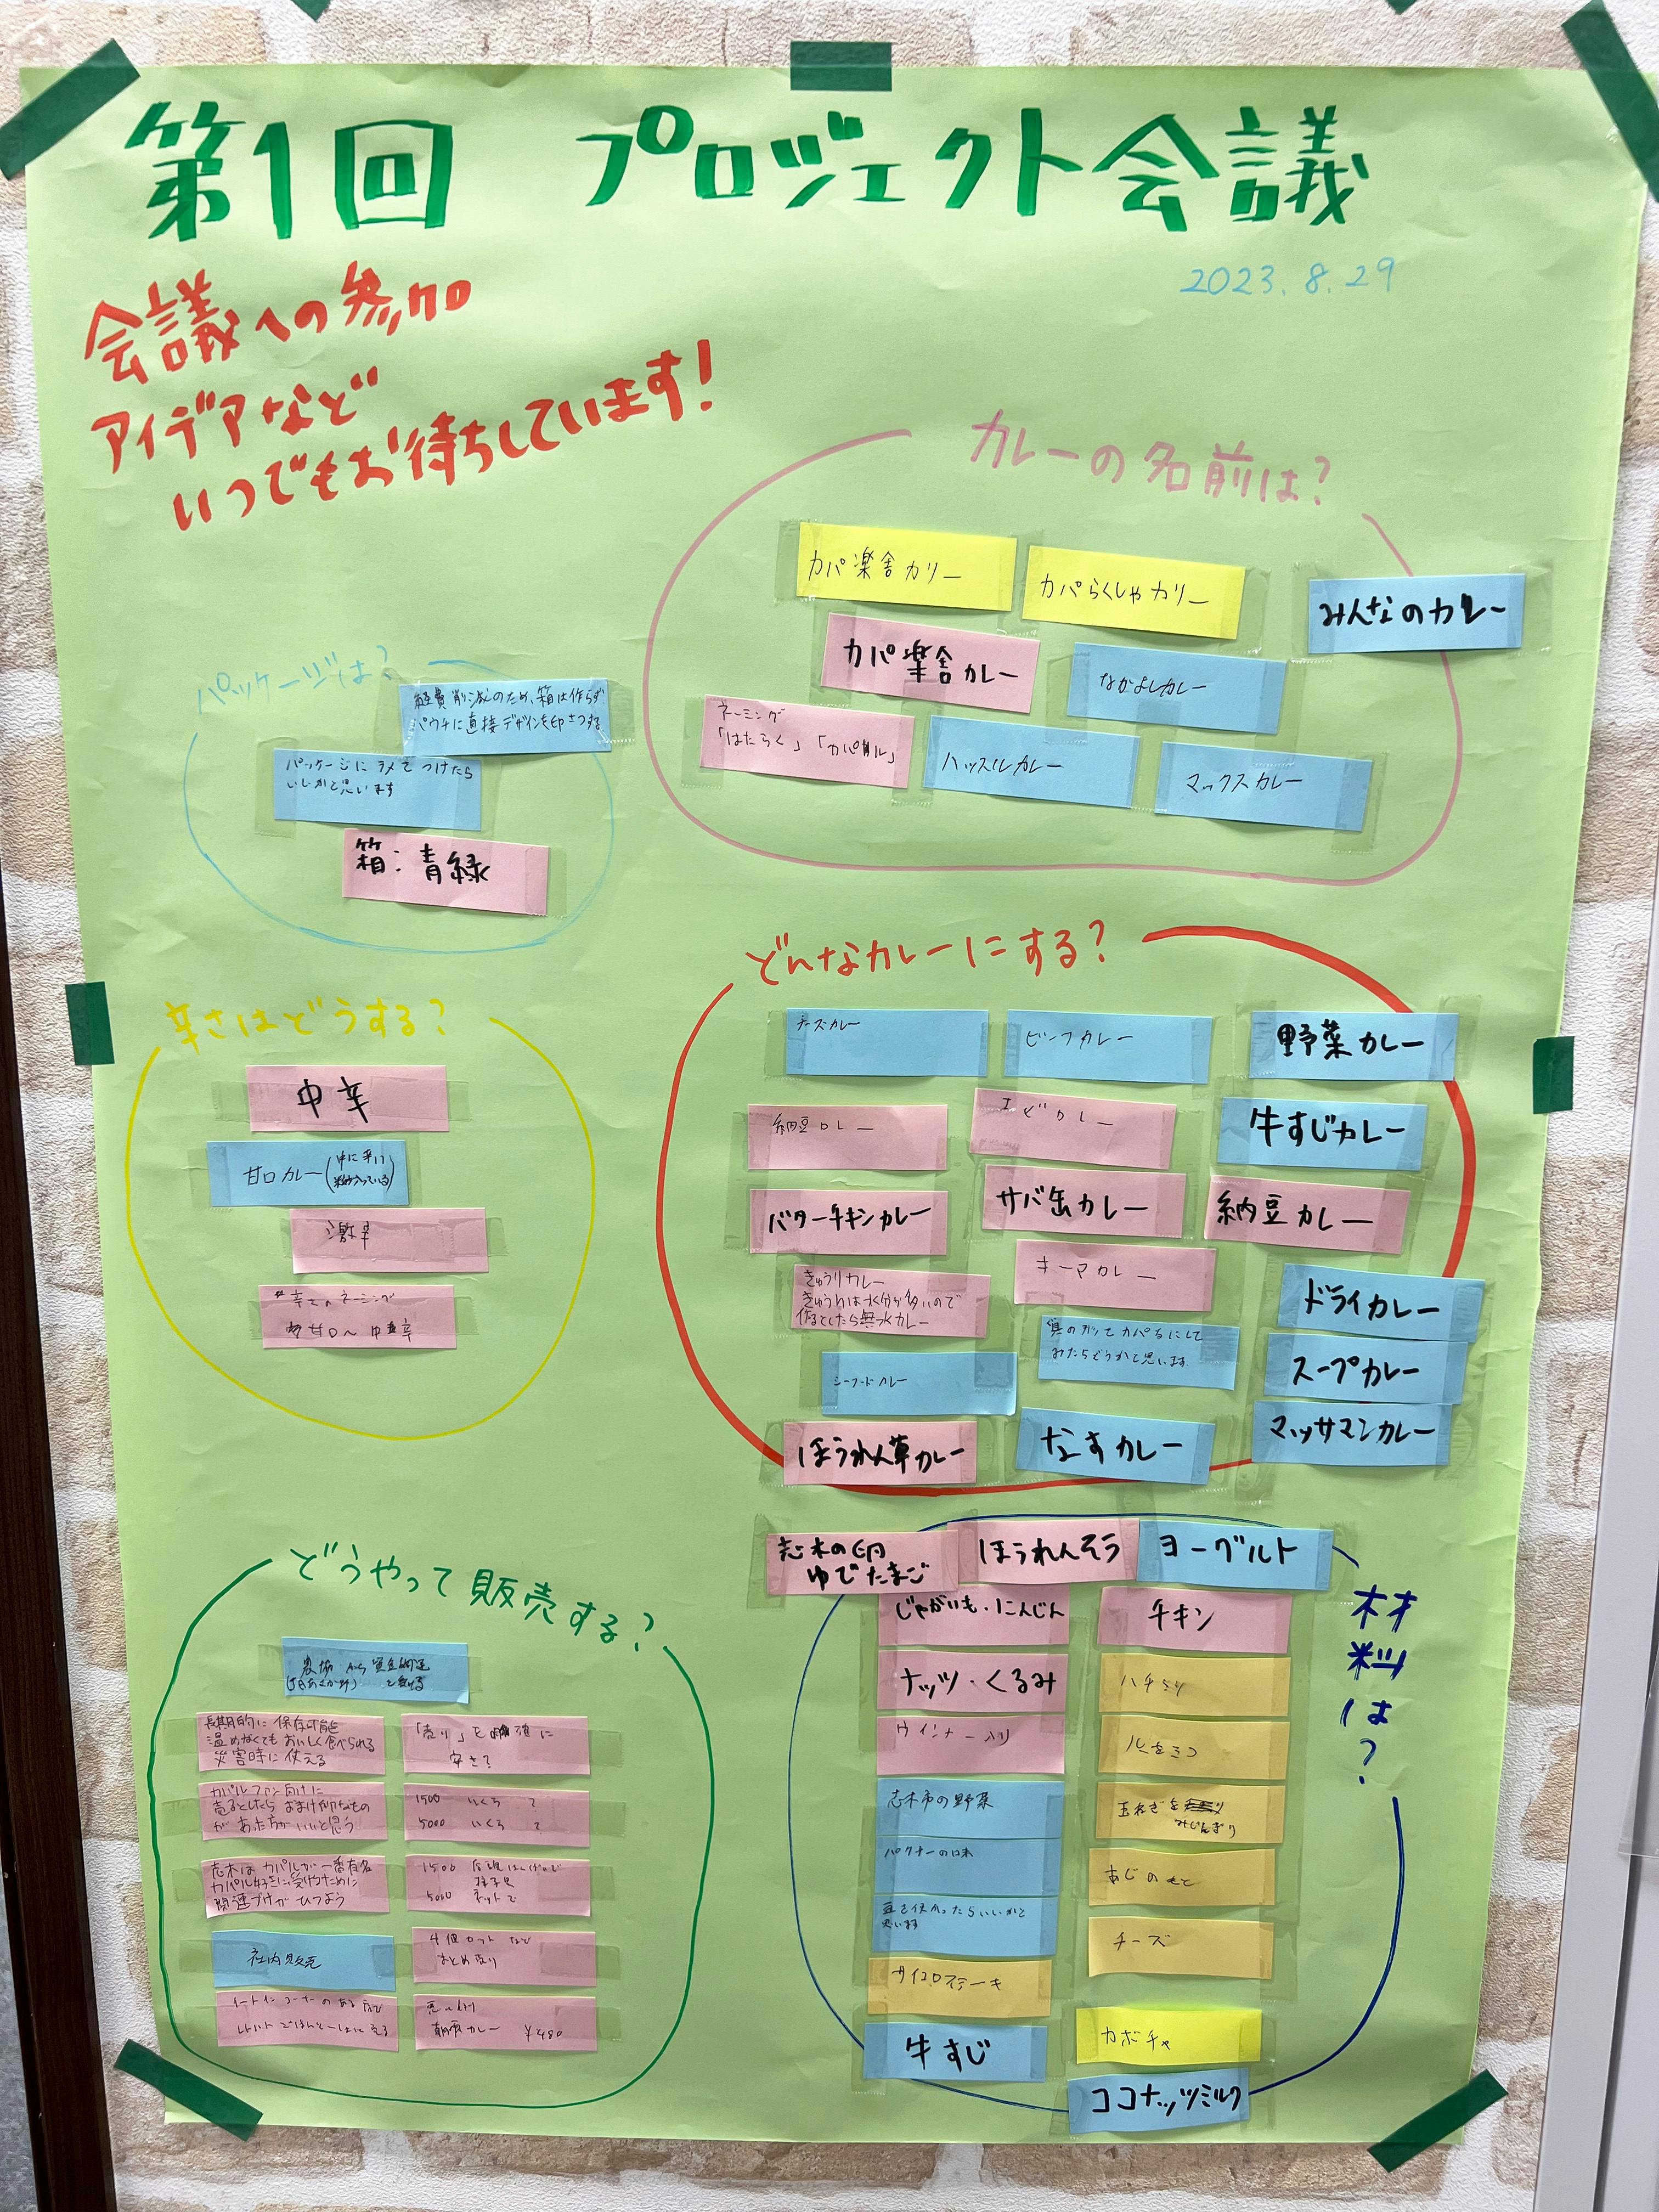 第1回 プロジェクト会議
2023.8.29
会議への参加
アイデアなど
いつでもお待ちしています!
カレーの名前は?
カパ楽舎カリー
カパらくしゃカリー
みんなのカレー
カパ楽舎カレー
なかよしカレー
ネーミング
「はたらく」「カパル」
ハッスルカレー
マックスカレー
パッケージは?
経費削減のため、箱は作らず
パウチに直接デザインを印さつする
パッケージにラメでつけたら
いいかと思います
箱:青緑
どんなカレーにする?
チーズカレー
ビーフカレー
野菜カレー
納豆カレー
エビカレー
牛すじカレー
バターチキンカレー
サバ缶カレー
納豆カレー
きゅうりカレー
きゅうりは水分が多いので
作るとしたら無水カレー
キーマカレー
ドライカレー
みたらどうかと思います
スープカレー
シーフードカレー
ほうれん草カレー
なすカレー
マッサマンカレー
辛さはどうする?
中辛
甘口カレー(中に辛い
入っている)
激辛
辛さのネーミング
甘口〜中辛
どうやって販売する?
長期的に保存可能
温めなくてもおいしく食べられる
災害時に使える
「売り」を明確に
安さ?
カパルファン向けに
売るとしたらおまけ的なもの
があった方がいいと思う
1500 いくら ?
5000 いくら ?
志木はカパルが一番有名
カパル好きに受けるために
関連づけがひつよう
1500
5000 ネットで
社内販売
4個セットなど
まとめ売り
イートインコーナーのある
レトルトごはんと一緒に
朝霞カレー ¥480
材料は?
志木の卵
ゆでたまご
ほうれんそう
ヨーグルト
じゃがいも・にんじん
チキン
ナッツ・くるみ
ハチミツ
ウインナー入り
志木市の野菜
玉ねぎを
みじんぎり
豆を使かったらいいかと
思います
あじのもと
チーズ
サイコロステーキ
牛すじ
カボチャ
ココナッツミルク